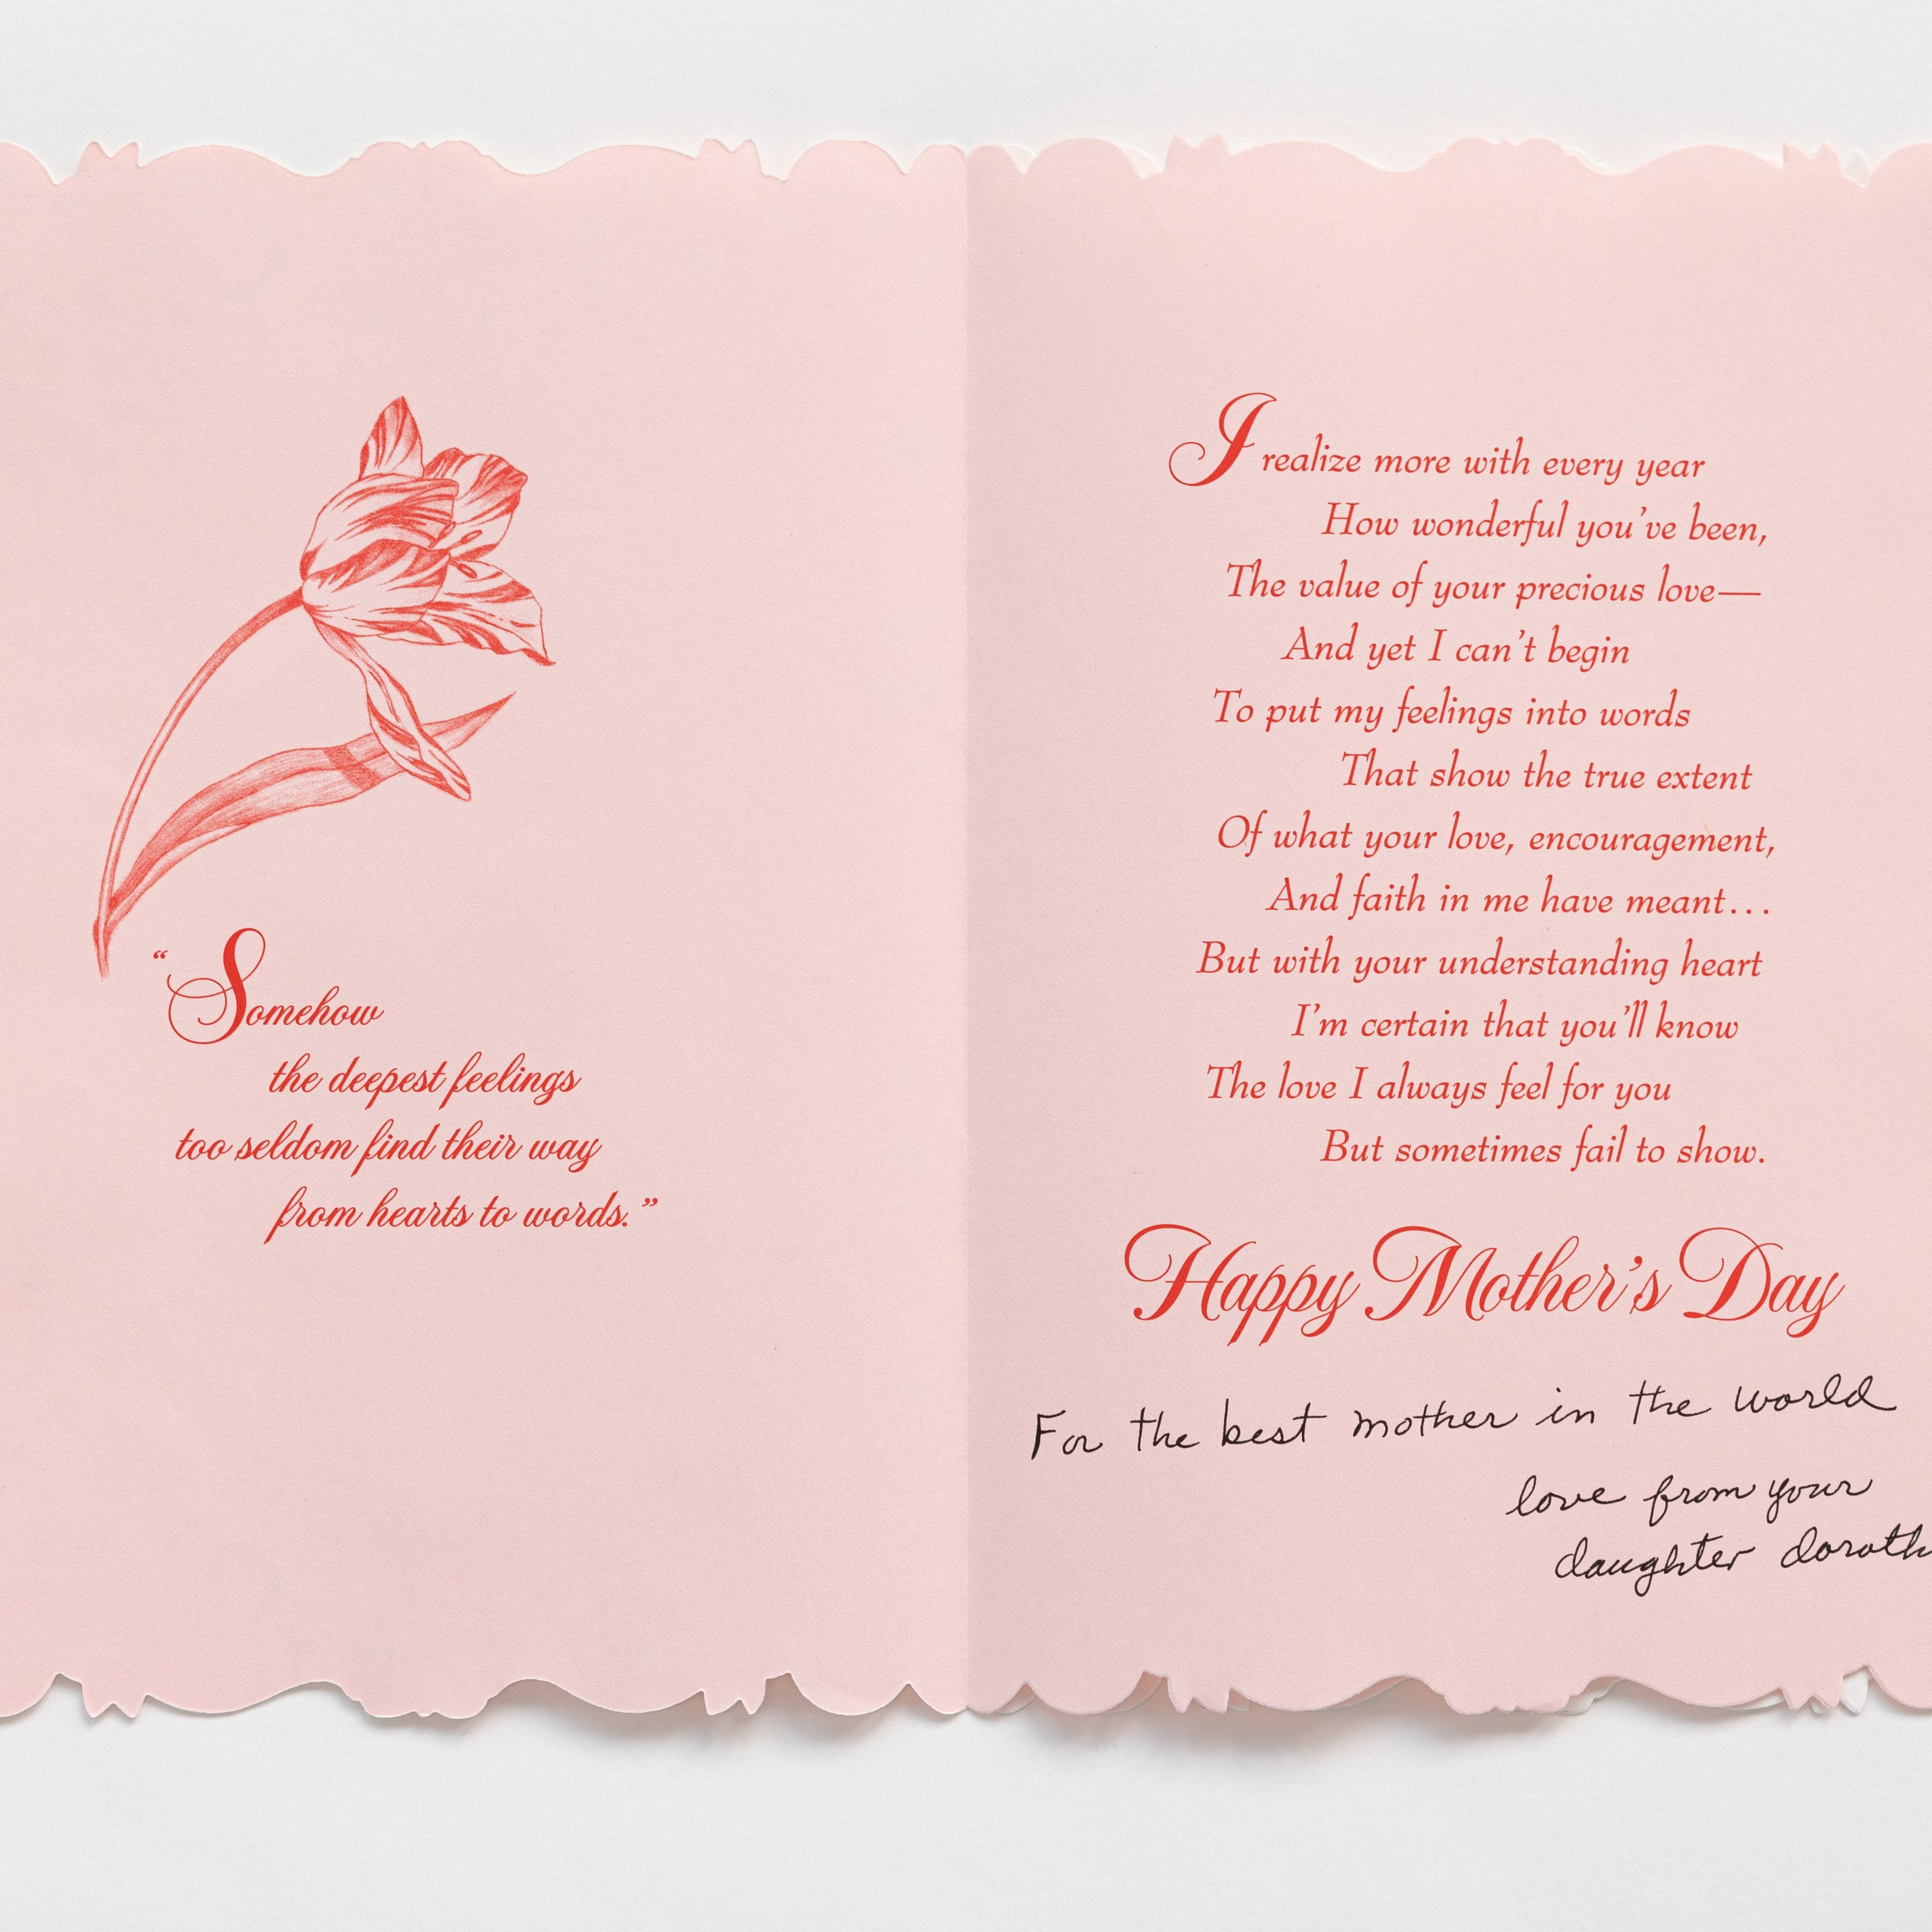 “Somehow
the deepest feelings
too seldom find their way
from hearts to words.”
I realize more with every year
How wonderful you’ve been,
The value of your precious love—
And yet I can’t begin
To put my feelings into words
That show the true extent
Of what your love, encouragement,
And faith in me have meant...
But with your understanding heart
I’m certain that you’ll know
The love I always feel for you
But sometimes fail to show.
Happy Mother’s Day
For the best mother in the world
love from your
daughter